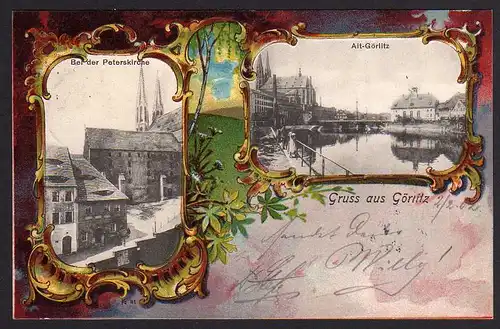 Bei der Peterskirche
Alt-Görlitz
Gruss aus Görlitz
Sendet Deine
Willy!